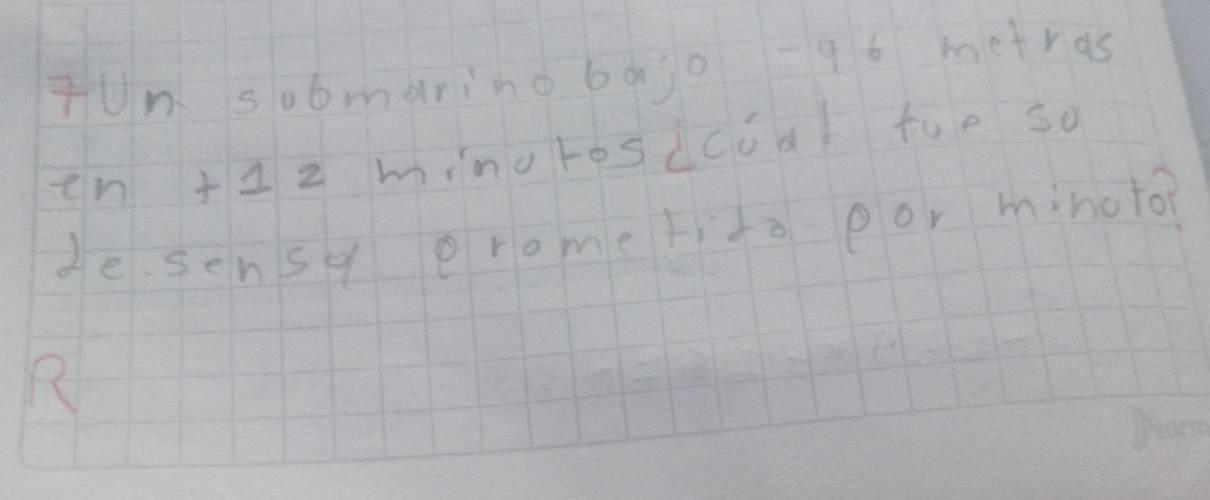 7 Un submarino bajo -96 metros
en +12 minutos ¿cúal fue su
desensy prometido por minuto?
R